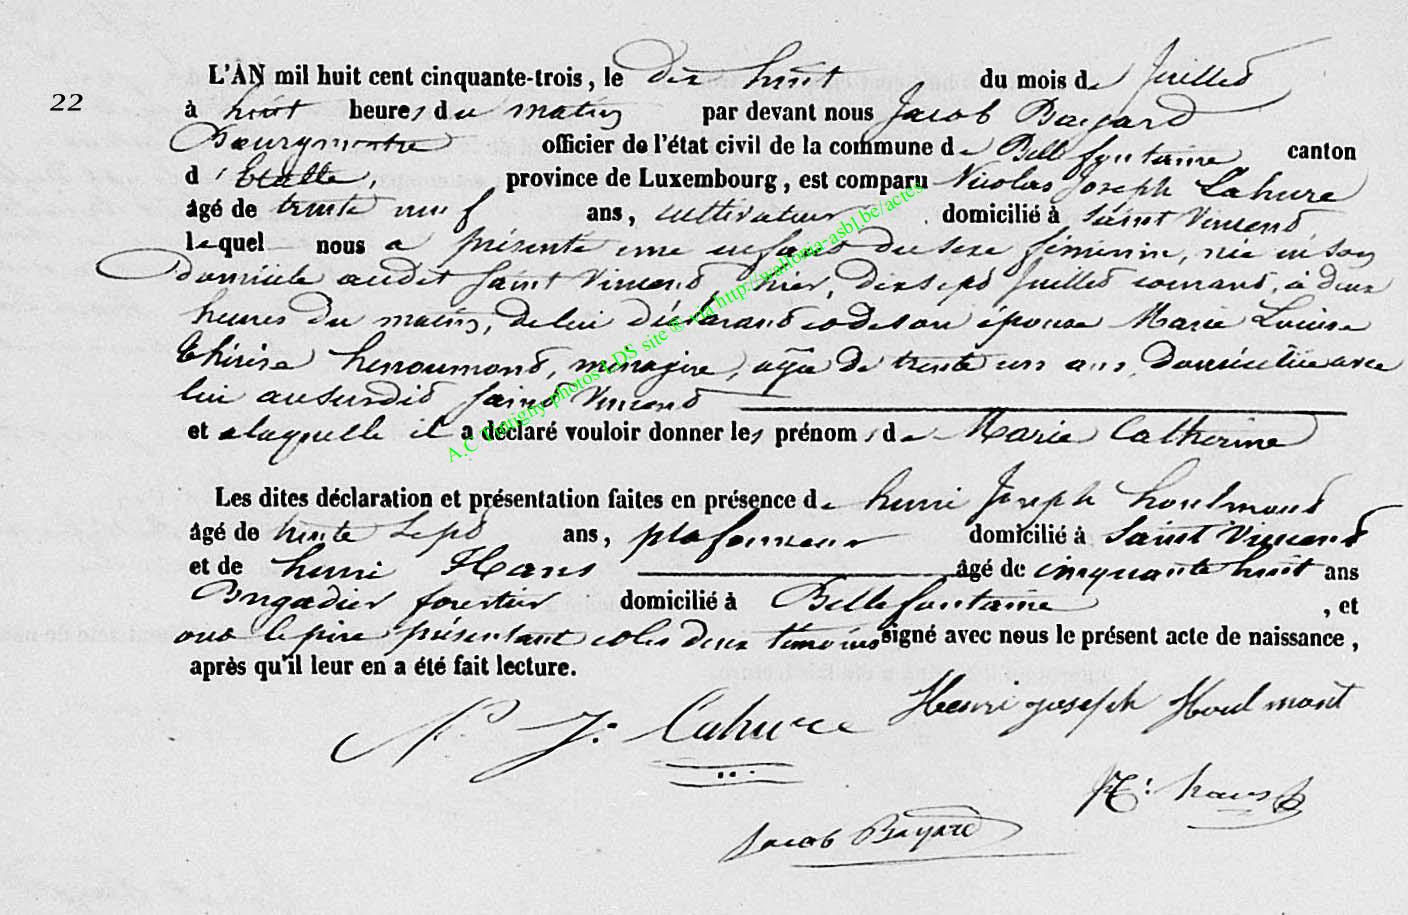 L'AN mil huit cent cinquante-trois, le dix huit du mois de Juillet
22
à huit heures du matin par devant nous Jacob Bayard
Bourgmestre officier de l'état civil de la commune de Bellefontaine canton
d'Etalle, province de Luxembourg, est comparu Nicolas Joseph Lahure
âgé de trente neuf ans, cultivateur domicilié à Saint Vincent,
lequel nous a présenté une enfant du sexe féminin, née en son
domicile audit Saint Vincent hier, dix sept Juillet courant, à deux
heures du matin, de lui déclarant et de son épouse Marie Louise
Thérèse henoumont, ménagère, âgée de trente un ans, domiciliée avec
lui au susdit Saint Vincent
et a laquelle il a déclaré vouloir donner les prénoms de Marie Catherine
Les dites déclaration et présentation faites en présence de henri Joseph houlmont
âgé de trente sept ans, plafonneur domicilié à Saint Vincent
et de henri Hans âgé de cinquante huit ans
Brigadier forestier domicilié à Bellefontaine, et
ont le père présentant et les deux témoins signé avec nous le présent acte de naissance,
après qu'il leur en a été fait lecture.
N. J. Lahure Henri joseph Houlmont
H: hans
Jacob Bayard
A.C Tintigny photos LDS site ® via http://wallonia-asbl.be/actes